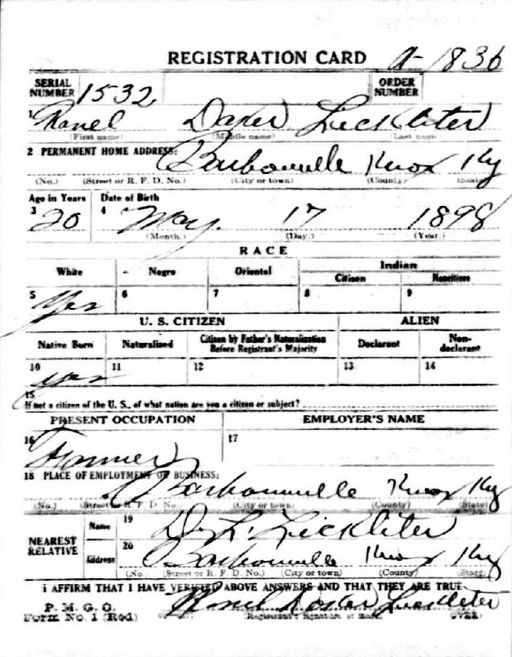 REGISTRATION CARD A-1836
SERIAL NUMBER 1532 ORDER NUMBER
1 Ranel Daker Lickliter
(First name) (Middle name) Last name
2 PERMANENT HOME ADDRESS: Barbourville Knox Ky
(No.) (Street or R. F. D. No.) (City or town) (County) (State)
Age in Years Date of Birth
3 20 4 May. 17 1898
(Month.) (Day.) (Year.)
RACE
White Negro Oriental Indian
Citizen Noncitizen
5 Yes 6 7 8 9
U. S. CITIZEN ALIEN
Native Born Naturalized Citizen by Father's Naturalization Before Registrant's Majority Declarant Non-declarant
10 yes 11 12 13 14
15
If not a citizen of the U. S., of what nation are you a citizen or subject?
PRESENT OCCUPATION EMPLOYER'S NAME
16 Farmer 17
18 PLACE OF EMPLOYMENT OR BUSINESS:
Barbourville Knox Ky
(No.) (Street or R. F. D. No.) (City or town) (County) (State)
NEAREST RELATIVE Name 19 D. L. Lickliter
Address 20 Barbourville Knox Ky
(No. (Street or R. F. D. No.) (City or town) (County) (State)
I AFFIRM THAT I HAVE VERIFIED ABOVE ANSWERS AND THAT THEY ARE TRUE.
P. M. G. O.
Form No. 1 (Red) Lickliter
(Registrant's signature or mark) OVER